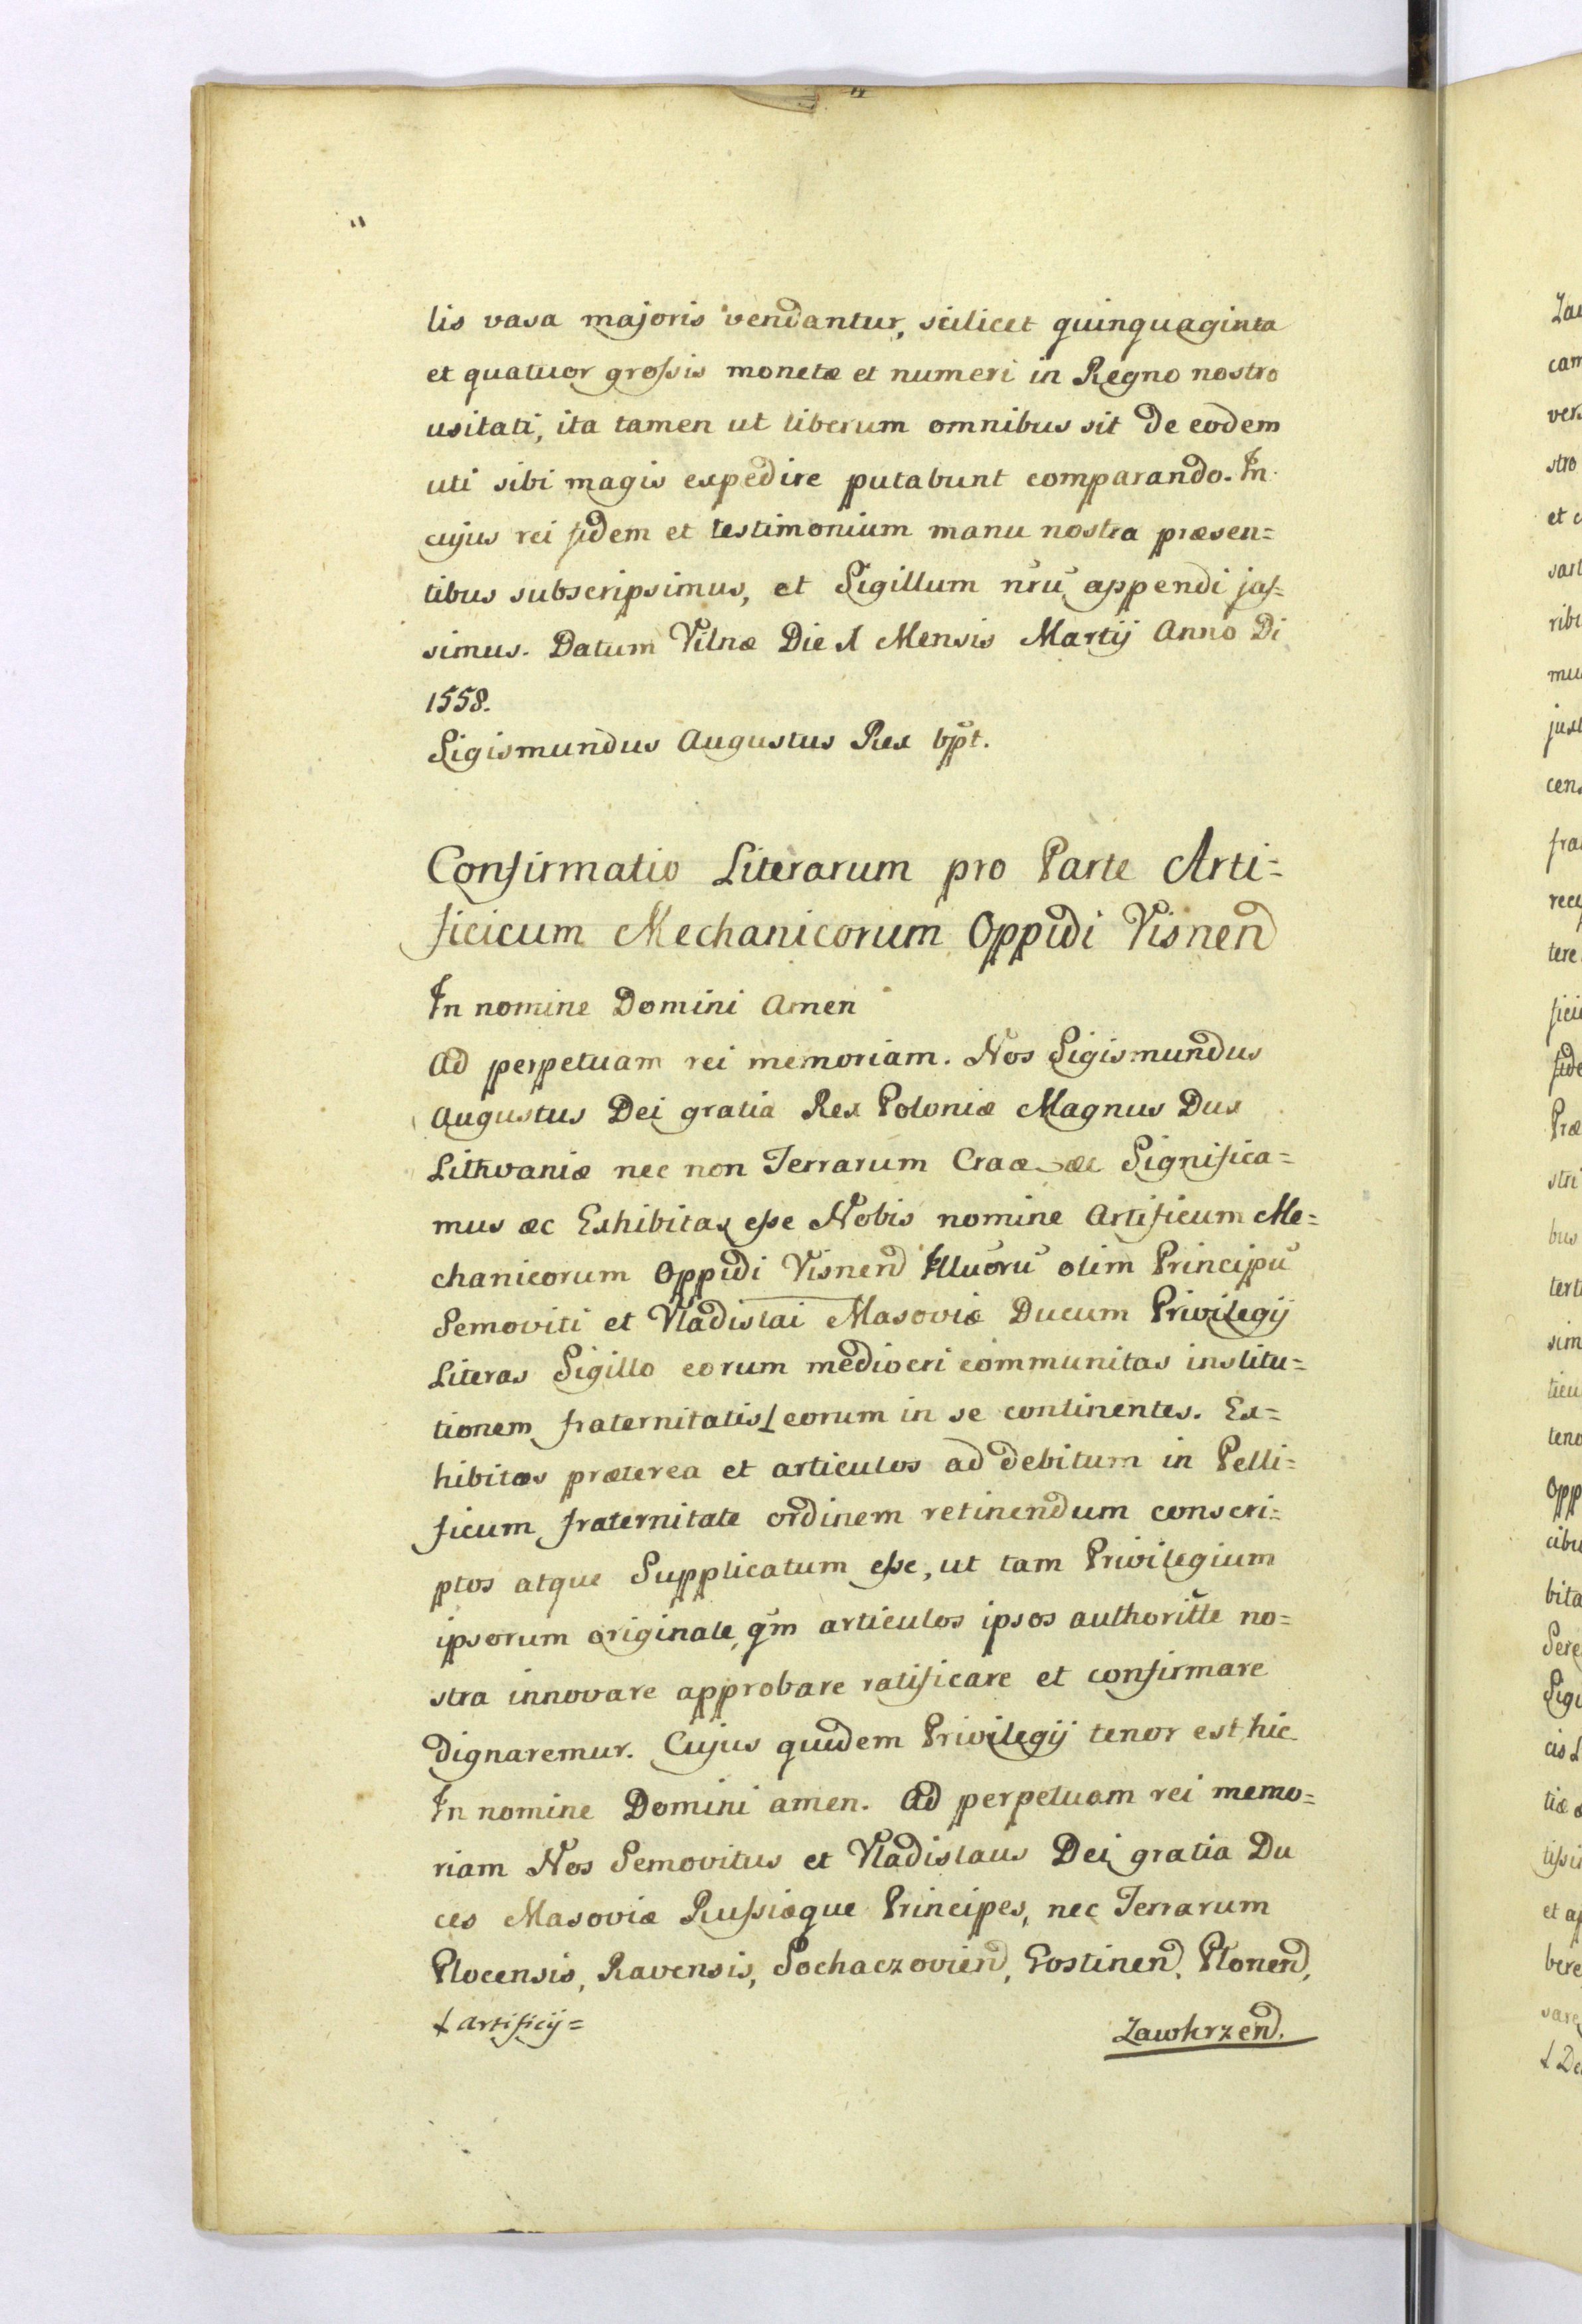 lis vasa majoris vendantur, scilicet quinquaginta
et quatuor grossis monetæ et numeri in Regno nostro
usitati, ita tamen ut liberum omnibus sit de eodem
uti sibi magis expedire putabunt comparando. In
cujus rei fidem et testimonium manu nostra præsen=
tibus subscripsimus, et Sigillum nrũ appendi jus=
simus. Datum Vilnæ Die 1 Mensis Martij Anno Di
1558.
Sigismundus Augustus Rex
Confirmatio Literarum pro Parte Arti=
ficicum Mechanicorum Oppidi Visnen
In nomine Domini Amen
Ad perpetuam rei memoriam. Nos Sigismundus
Augustus Dei gratia Rex Poloniæ Magnus Dux
Lithvaniæ nec non Terrarum Craæ æc Significa=
mus æc Exhibitas esse Nobis nomine Artificum Me=
chanicorum Oppidi Visnen Illuorũ olim Principũ
Semoviti et Vladislai Masoviæ Ducum Privilegij
Literas Sigillo eorum mediocri communitas institu=
tionem fraternitatis eorum in se continentes. Ex=
hibitos præterea et articulos ad debitum in Pelli=
ficum fraternitate ordinem retinendum conscri=
ptos atque Supplicatum esse, ut tam Privilegium
ipsorum originale, qm̃ articulos ipsos authoritte no=
stra innovare approbare ratificare et confirmare
dignaremur. Cujus quidem Privilegij tenor est hic
In nomine Domini amen. Ad perpetuam rei memo=
riam Nos Semovitus et Vladislaus Dei gratia Du
ces Masoviæ Russiæque Principes, nec Terrarum
Plocensis, Ravensis, Sochaczovien, Gostinen, Plonen,
artificij=
Zawkrzen.